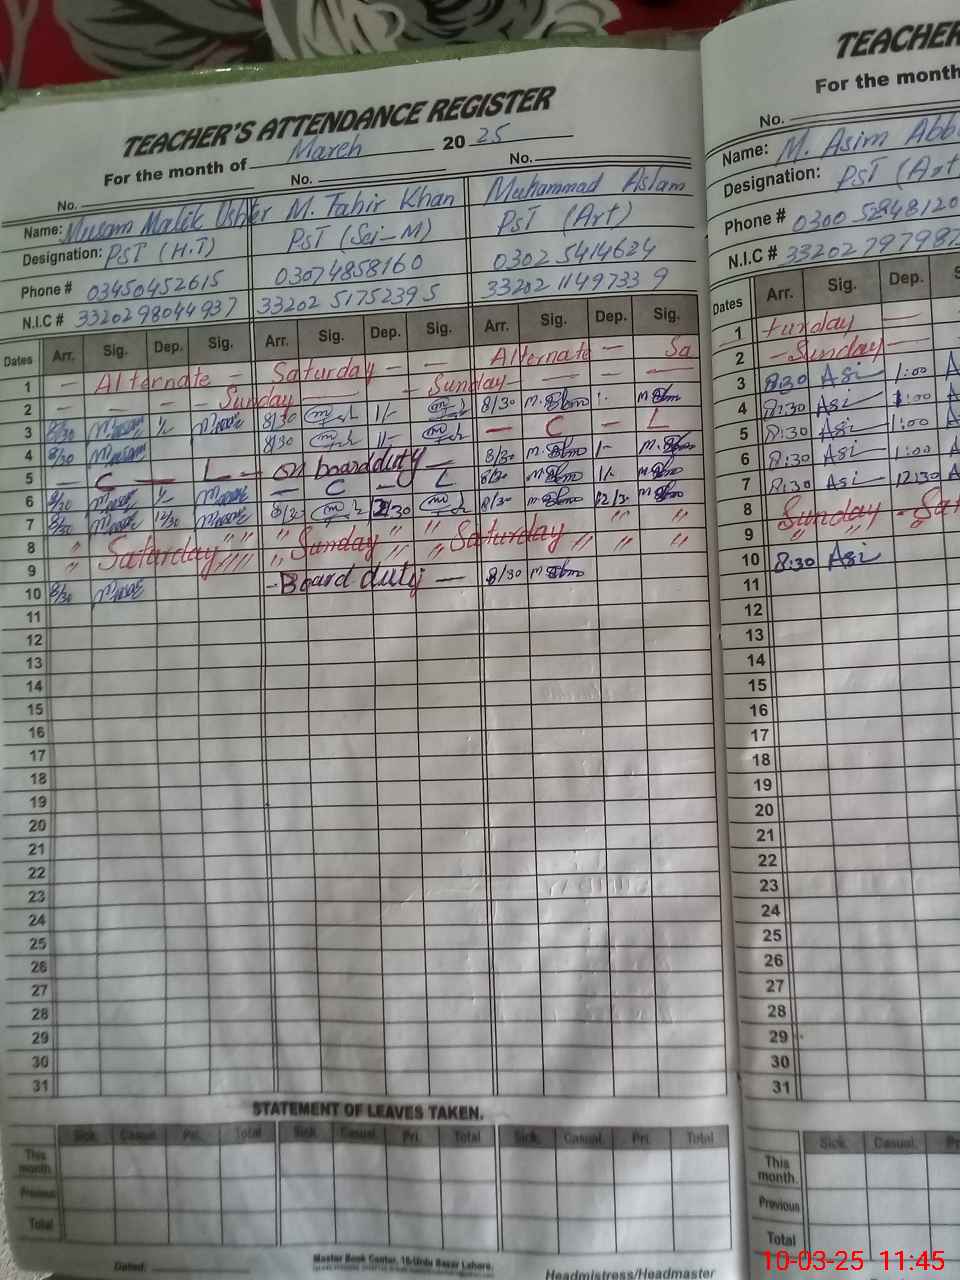 TEACHER'S ATTENDANCE REGISTER
For the month of March 2025
No. No. No.
Name: Musam Malik Usher M. Tahir Khan Muhammad Aslam
Designation: PST (H.T) PST (Sci-M) PST (Art)
Phone # 03450452615 03074858160 03025414624
N.I.C # 3320298044937 33202 5175239 5 33202 1149733 9
Dates Arr. Sig. Dep. Sig. Arr. Sig. Dep. Sig. Arr. Sig. Dep. Sig.
1 — Alternate — Saturday — — Alternate — Sa
2 — — — Sunday — — Sunday — — —
3 8/30 1/- 8/30 1/- 8/30 1/-
4 8/30 8/30 1/- — C — L
5 — C — L — on board duty — 8/30 1/-
6 8/30 1/- — C — L 8/30 1/-
7 8/30 12/30 8/30 12/30 8/30 12/30
8 " Saturday " " " Sunday " " Saturday " " "
9 " " " "
10 8/30 - Board duty — 8/30
11
12
13
14
15
16
17
18
19
20
21
22
23
24
25
26
27
28
29
30
31
STATEMENT OF LEAVES TAKEN.
Sick. Casual. Pri. Total Sick. Casual. Pri. Total Sick. Casual. Pri. Total
This month.
Previous
Total
Dated:
Master Book Center, 18-Urdu Bazar Lahore.
Headmistress/Headmaster
TEACHER
For the month
No.
Name: M. Asim Abb
Designation: PST (Art
Phone # 0300 5848120
N.I.C # 33202797987
Dates Arr. Sig. Dep. S
1 turday —
2 - Sunday —
3 8:30 Asi 1:00 A
4 8:30 Asi 1:00 A
5 8:30 Asi 1:00 A
6 8:30 Asi 1:00 A
7 8:30 Asi 12:30 A
8 Sunday - Sat
9 " "
10 8:30 Asi
11
12
13
14
15
16
17
18
19
20
21
22
23
24
25
26
27
28
29
30
31
Sick. Casual. Pr
This month.
Previous
Total
10-03-25 11:45